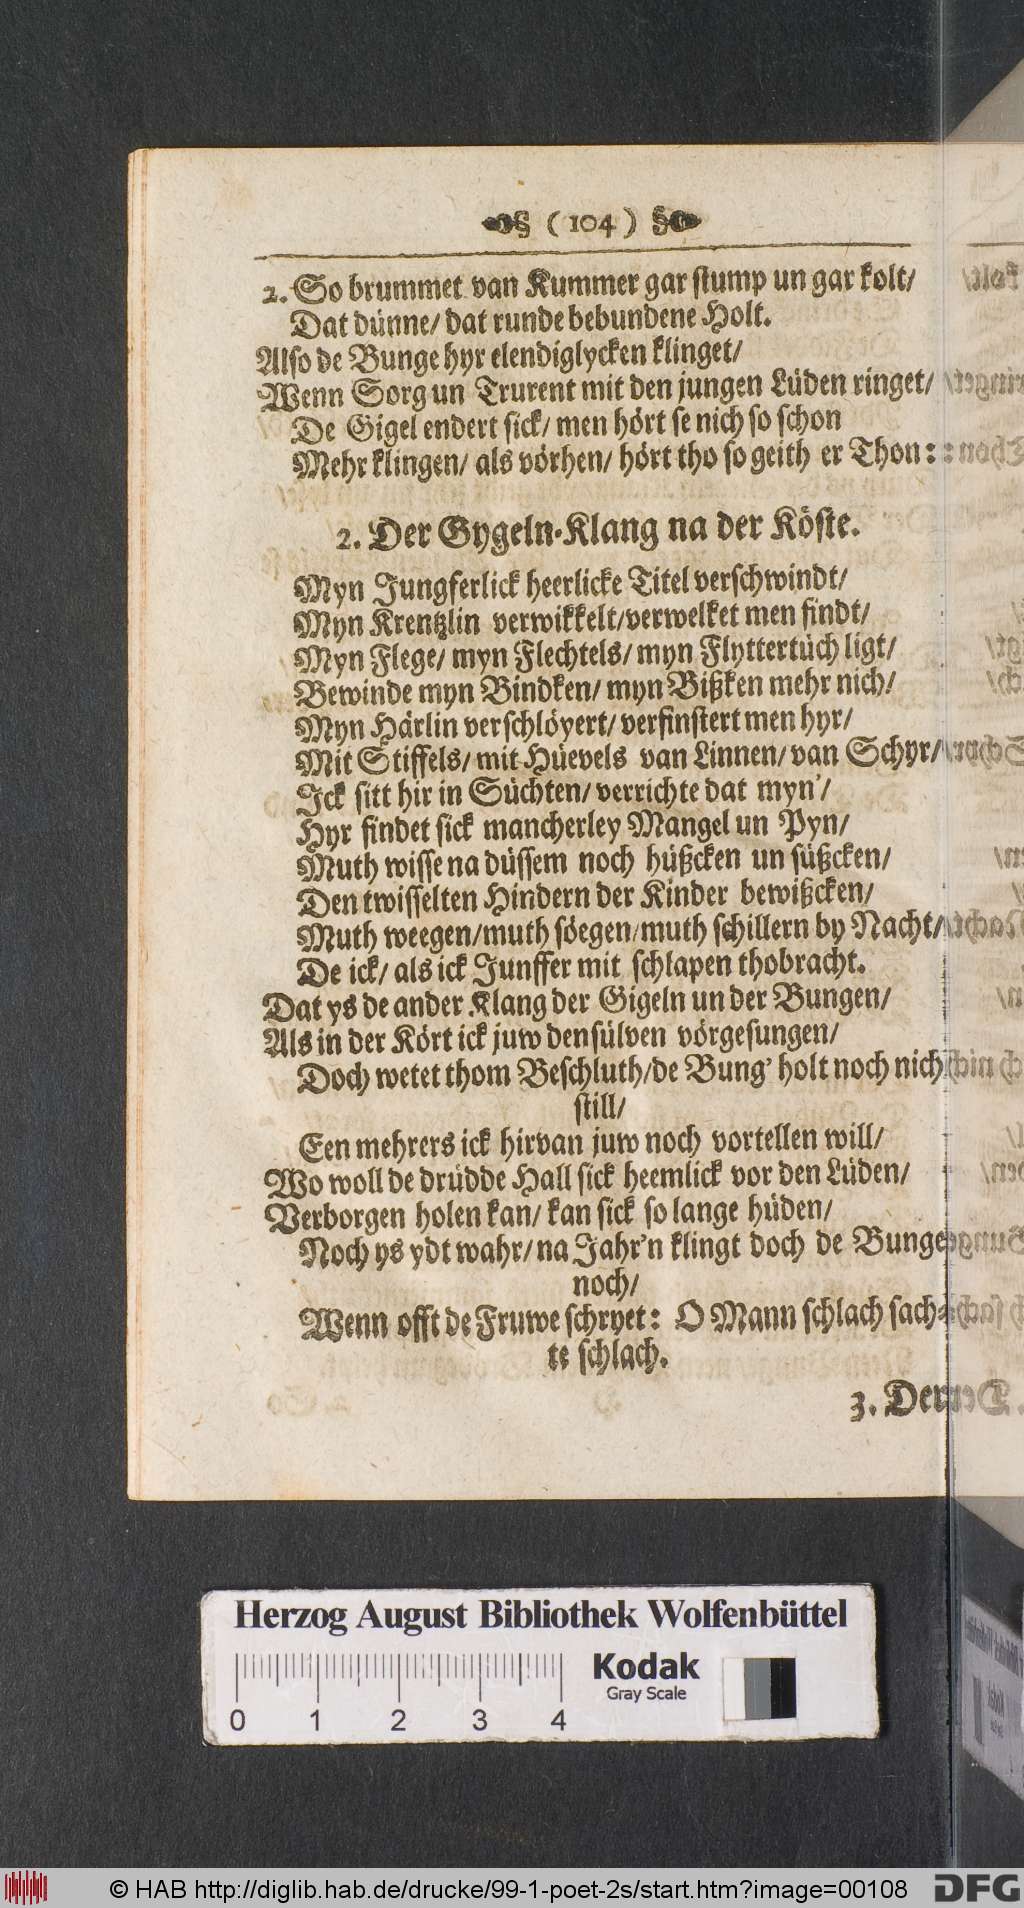 ( 104 )
2. So brummet van Kummer gar stump un gar kolt/
Dat dünne/ dat runde bebundene Holt.
Also de Bunge hyr elendiglycken klinget/
Wenn Sorg un Trurent mit den jungen Lüden ringet/
De Gigel endert sick/ men hört se nich so schon
Mehr klingen/ als vörhen/ hört tho so geith er Thon:
2. Der Gygeln-Klang na der Köste.
Myn Jungferlick heerlicke Titel verschwindt/
Myn Krentzlin verwikkelt/verwelket men findt/
Myn Flege/ myn Flechtels/ myn Flyttertüch ligt/
Bewinde myn Bindken/ myn Bißken mehr nich/
Myn Härlin verschlöyert/ verfinstert men hyr/
Mit Stiffels/ mit Hüevels van Linnen/ van Schyr/
Ick sitt hir in Süchten/ verrichte dat myn'/
Hyr findet sick mancherley Mangel un Pyn/
Muth wisse na düssem noch hüßcken un süßcken/
Den twisselten Hindern der Kinder bewißcken/
Muth weegen/muth söegen/muth schillern by Nacht/
De ick/ als ick Junffer mit schlapen thobracht.
Dat ys de ander Klang der Gigeln un der Bungen/
Als in der Kört ick juw densülven vörgesungen/
Doch wetet thom Beschluth/de Bung' holt noch nich
still/
Een mehrers ick hirvan juw noch vortellen will/
Wo woll de drüdde Hall sick heemlick vor den Lüden/
Verborgen holen kan/ kan sick so lange hüden/
Noch ys ydt wahr/ na Jahr'n klingt doch de Bunge
noch/
Wenn offt de Fruwe schryet: O Mann schlach sach-
te schlach.
3. Der
Herzog August Bibliothek Wolfenbüttel
Kodak
Gray Scale
0 1 2 3 4
© HAB http://diglib.hab.de/drucke/99-1-poet-2s/start.htm?image=00108
DFG